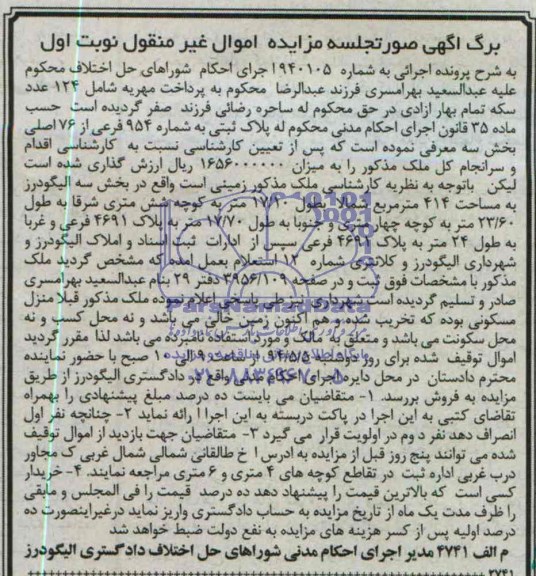 برگ اگهی صورتجلسه مزایده اموال غیر منقول نوبت اول
به شرح پرونده اجرائی به شماره ۱۹۴۰۱۰۵ جرای احکام شوراهای حل اختلاف محکوم
علیه عبدالسعید بهرامسری فرزند عبدالرضا محکوم به پرداخت مهریه شامل ۱۲۴ عدد
سکه تمام بهار ازادی در حق محکوم له ساحره رضائی فرزند صفر گردیده است حسب
ماده ۳۵ قانون اجرای احکام مدنی محکوم له پلاک ثبتی به شماره ۹۵۴ فرعی از ۷۶ اصلی
بخش سه معرفی نموده است که پس از تعیین کارشناسی نسبت به کارشناسی اقدام
و سرانجام کل ملک مذکور را به میزان ۱۶۵۶۰۰۰۰۰۰ ریال ارزش گذاری شده است
لیکن باتوجه به نظریه کارشناسی ملک مذکور زمینی است واقع در بخش سه الیگودرز
به مساحت ۴۱۴ مترمربع شمالا بطول ۱۷/۲۰ متر به کوچه شش متری شرقا به طول
۲۳/۶۰ متر به کوچه چهار متری و جنوبا به طول ۱۷/۷۰ متر به پلاک ۴۶۹۱ فرعی و غربا
به طول ۲۴ متر به پلاک ۴۶۹۱ فرعی سپس از ادارات ثبت اسناد و املاک الیگودرز و
شهرداری الیگودرز و کلانتری شماره ۱۲ استعلام بعمل امده که مشخص گردید ملک
مذکور با مشخصات فوق ثبت و در صفحه ۳۹۵۶/۱۰۹ دفتر ۲۹ بنام عبدالسعید بهرامسری
صادر و تسلیم گردیده است شهرداری نیز طی پاسخی اعلام نموده ملک مذکور قبلا منزل
مسکونی بوده که تخریب شده و هم اکنون زمین خالی می باشد و نه محل کسب و نه
محل سکونت می باشد و متعلق به مالک و مورد استفاده نامبرده می باشد لذا مقرر گردید
اموال توقیف شده برای روز دوشنبه ۹۴/۵/۵ از ساعت ۹ الی ۱۰ صبح با حضور نماینده
محترم دادستان در محل دایره اجرای احکام مدنی واقع در دادگستری الیگودرز از طریق
مزایده به فروش بررسد. ۱- متقاضیان می بایست ده درصد مبلغ پیشنهادی را بهمراه
تقاضای کتبی به این اجرا در پاکت دربسته به این اجرا ارائه نماید ۲- چنانچه نفر اول
انصراف دهد نفر دوم در اولویت قرار می گیرد ۳- متقاضیان جهت بازدید از اموال توقیف
شده می توانند پنج روز قبل از مزایده به ادرس خ طالقانی شمالی شمال غربی ک مجاور
درب غربی اداره ثبت در تقاطع کوچه های ۴ متری و ۶ متری مراجعه نمایند. ۴- خریدار
کسی است که بالاترین قیمت را پیشنهاد دهد ده درصد قیمت را فی المجلس و مابقی
را ظرف مدت یک ماه از تاریخ مزایده به حساب دادگستری واریز نماید درغیراینصورت ده
درصد اولیه پس از کسر هزینه های مزایده به نفع دولت ضبط خواهد شد
م الف ۴۷۴۱ مدیر اجرای احکام مدنی شوراهای حل اختلاف دادگستری الیگودرز
۲۷۴۱
ParsNamadData